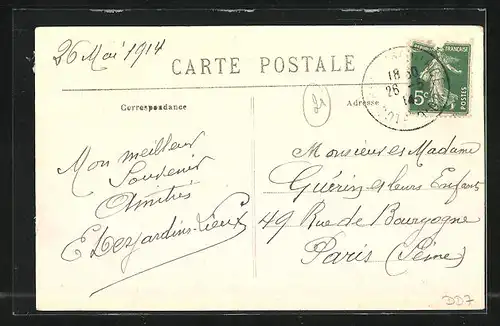 26 Mai 1914
CARTE POSTALE
Correspondance
Adresse
21
RÉPUBLIQUE FRANÇAISE
5c
POSTES
18 30
26 -5
14
Mon meilleur
Souvenir
Amitiés
E Desjardins-Vieux
Monsieur et Madame
Guérin et leurs Enfants
49 Rue de Bourgogne
Paris (Seine)
DD7